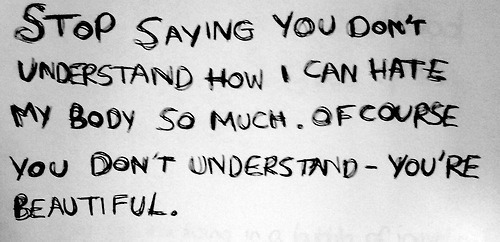 STOP SAYING YOU DON'T
UNDERSTAND HOW I CAN HATE
MY BODY SO MUCH. OF COURSE
YOU DON'T UNDERSTAND - YOU'RE
BEAUTIFUL.